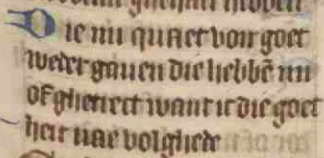 Die nu quaet voir goet
weder gauen die hebbē mi
of ghetrect want ic die goet
heit nae volghede